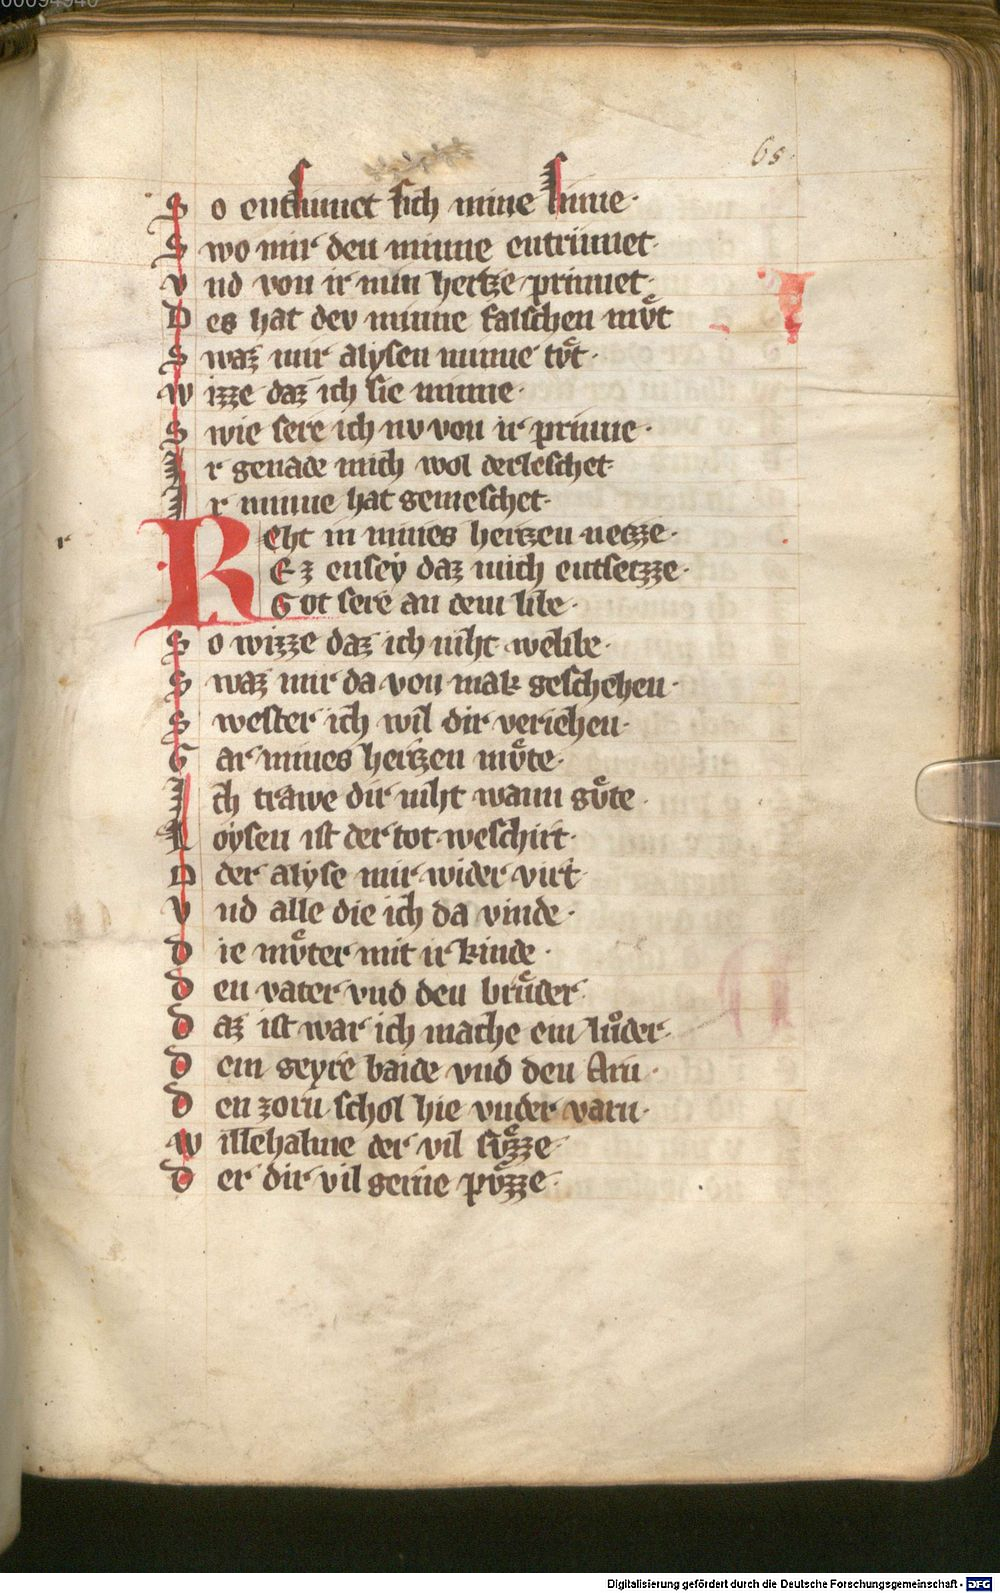 00094940
65
So entsinnet sich mine sinne·
Swo mir deu minne entrinnet·
Vnd von ir min hertze prinnet·
Des hat dev minne falschen mvͦt
Swaz mir alysen minne tvͦt·
Wizze daz ich sie minne·
Swie sere ich nv von ir prinne·
Ir genade mich wol derleschet·
Ir minne hat gemeschet·
Reht in mines hertzen netzze·
Ez ensey daz mich entsetzze·
Got sere an dem libe·
So wizze daz ich niht welibe·
Swaz mir da von mak geschehen·
Swester ich wil dir veriehen·
Gar mines hertzen mvͦte·
Ich trawe dir niht wann gvͤte·
Loysen ist der tot weschirt·
Oder alyse mir wider virt·
Vnd alle die ich da vinde·
Die mvͦter mit ir kinde·
Den vater vnd den brvͤder·
Daz ist war ich mache ein lvͦder·
Dem geyre baide vnd den Arn·
Den zorn schol hie vnder varn·
Willehalme der vil svͤzze·
Der dir vil gerne pvͤzze·
Digitalisierung gefördert durch die Deutsche Forschungsgemeinschaft - DFG